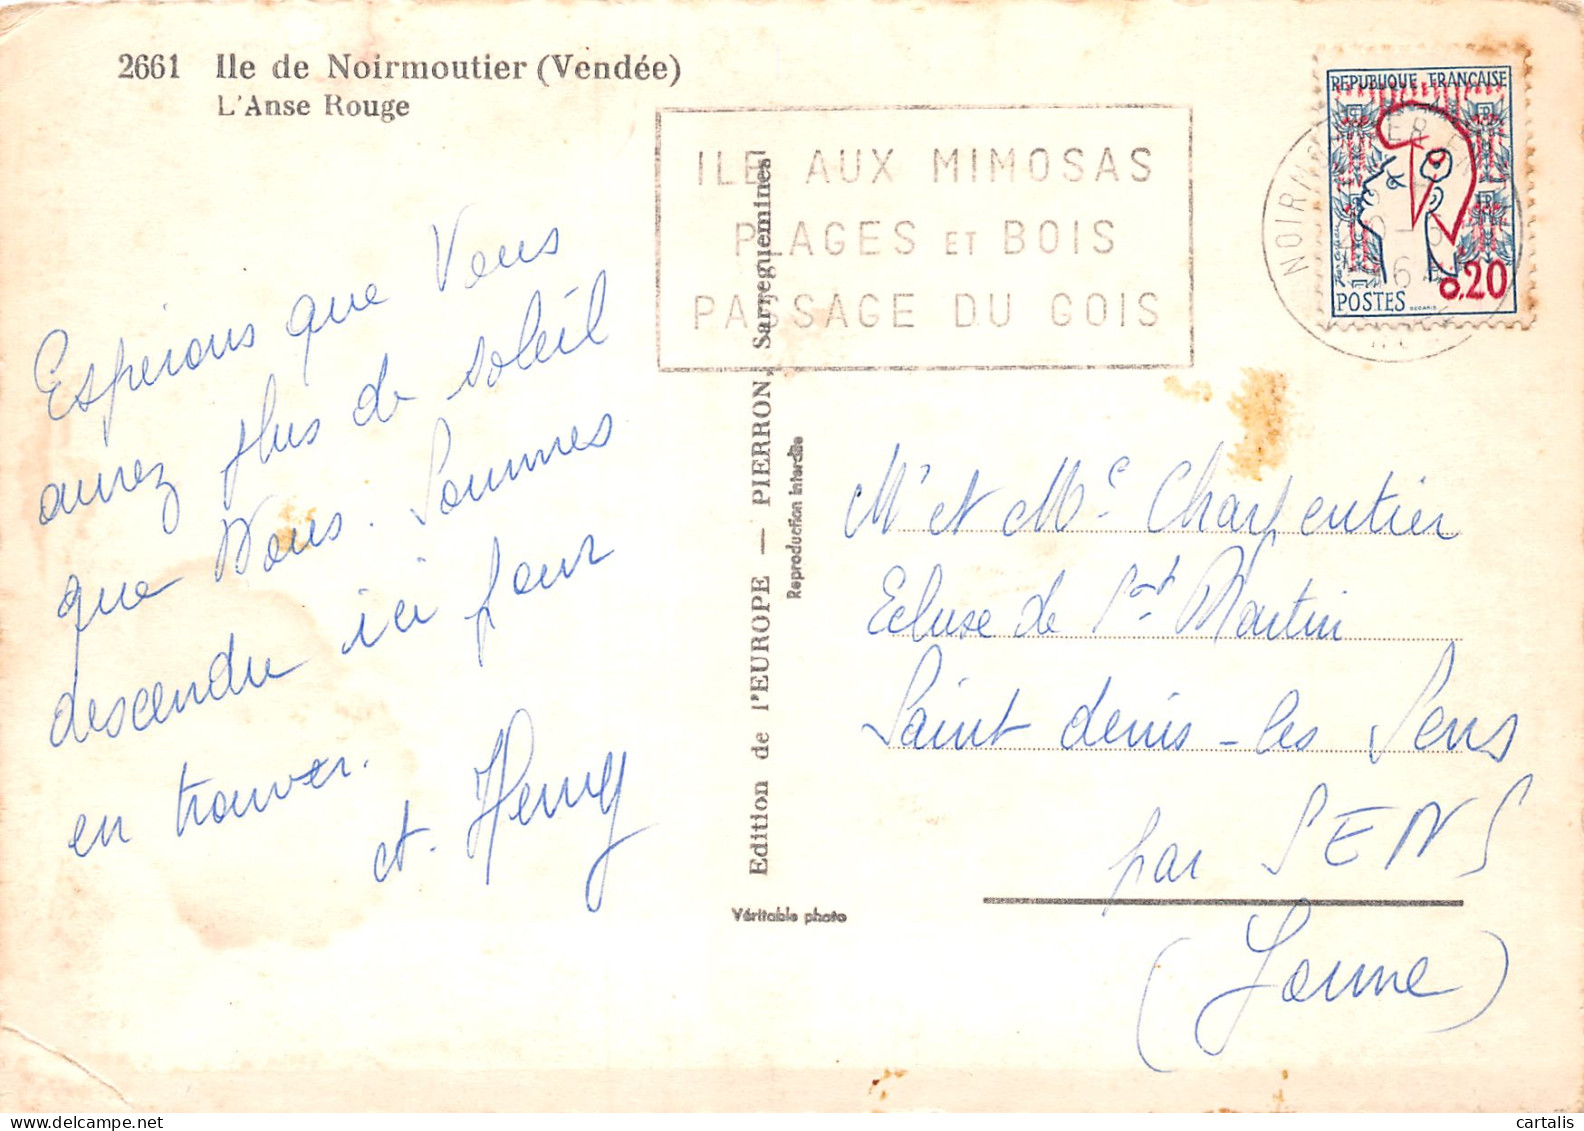 2661 Ile de Noirmoutier (Vendée)
L'Anse Rouge
ILE AUX MIMOSAS
PLAGES ET BOIS
PASSAGE DU GOIS
REPUBLIQUE FRANÇAISE
POSTES
0,20
Espérons que Vous
aurez plus de soleil
que Nous. Sommes
descendu ici pour
en trouver.
et. Henry
Edition de l'EUROPE — PIERRON, Sarreguemines
Reproduction interdite
Véritable photo
Mr et Me Charpentier
Ecluse de St Martin
Saint denis-les Sens
par SENS
(Yonne)
cartalis